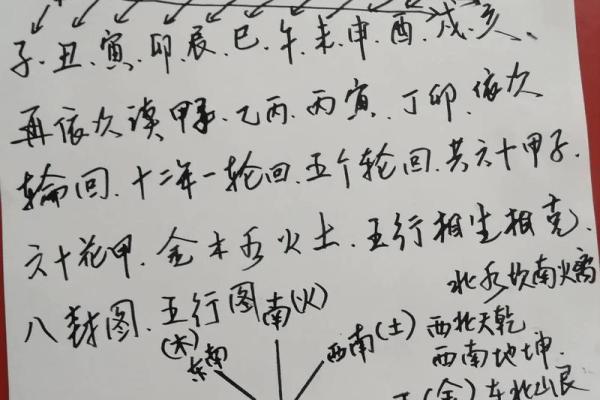 子.丑.寅.卯.辰.巳.午.未.申.酉.戌.亥.
再依次读甲子.乙丙.丙寅.丁卯.依次
轮回.十二年一轮回.五个轮回.共六十甲子.
六十花甲.金木水火土.五行相生相克.
北水坎南火离
八卦图.五行图
南(火)
(木)
东南
西南(土)
西北天乾
西南地坤.
(金)东北山艮